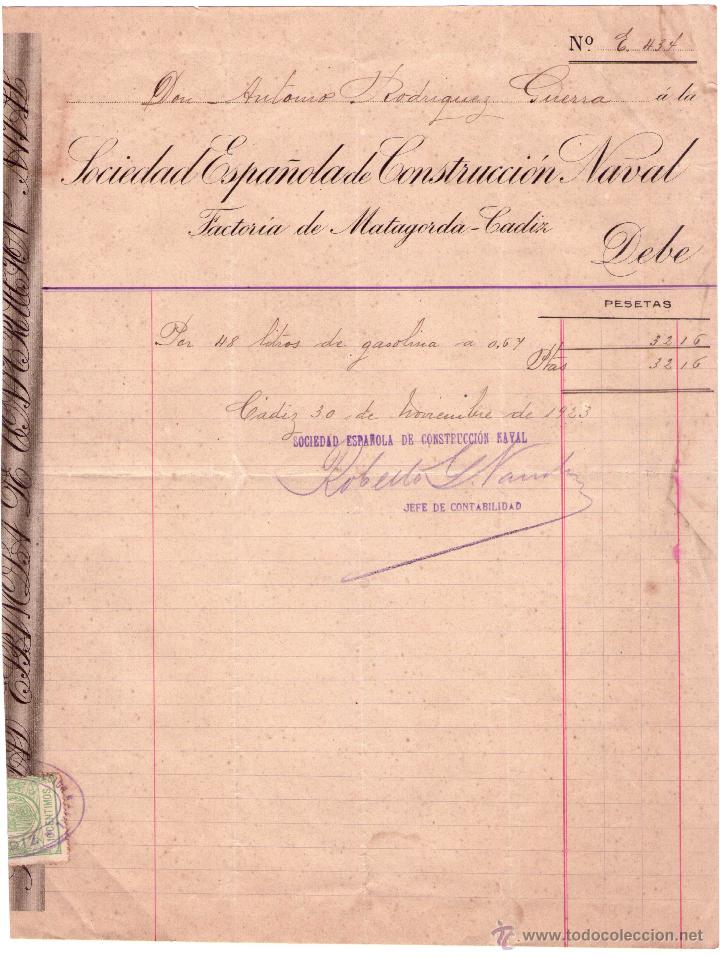 Nº E. 434
Don Antonio Rodriguez Guerra á la
Sociedad Española de Construcción Naval
Factoría de Matagorda-Cadiz
Debe
PESETAS
Por 48 litros de gasolina a 0,67 32 16
Ptas 32 16
Cádiz 30 de Noviembre de 1923
SOCIEDAD ESPAÑOLA DE CONSTRUCCIÓN NAVAL
Roberto
JEFE DE CONTABILIDAD
10 CENTIMOS
© www.todocoleccion.net